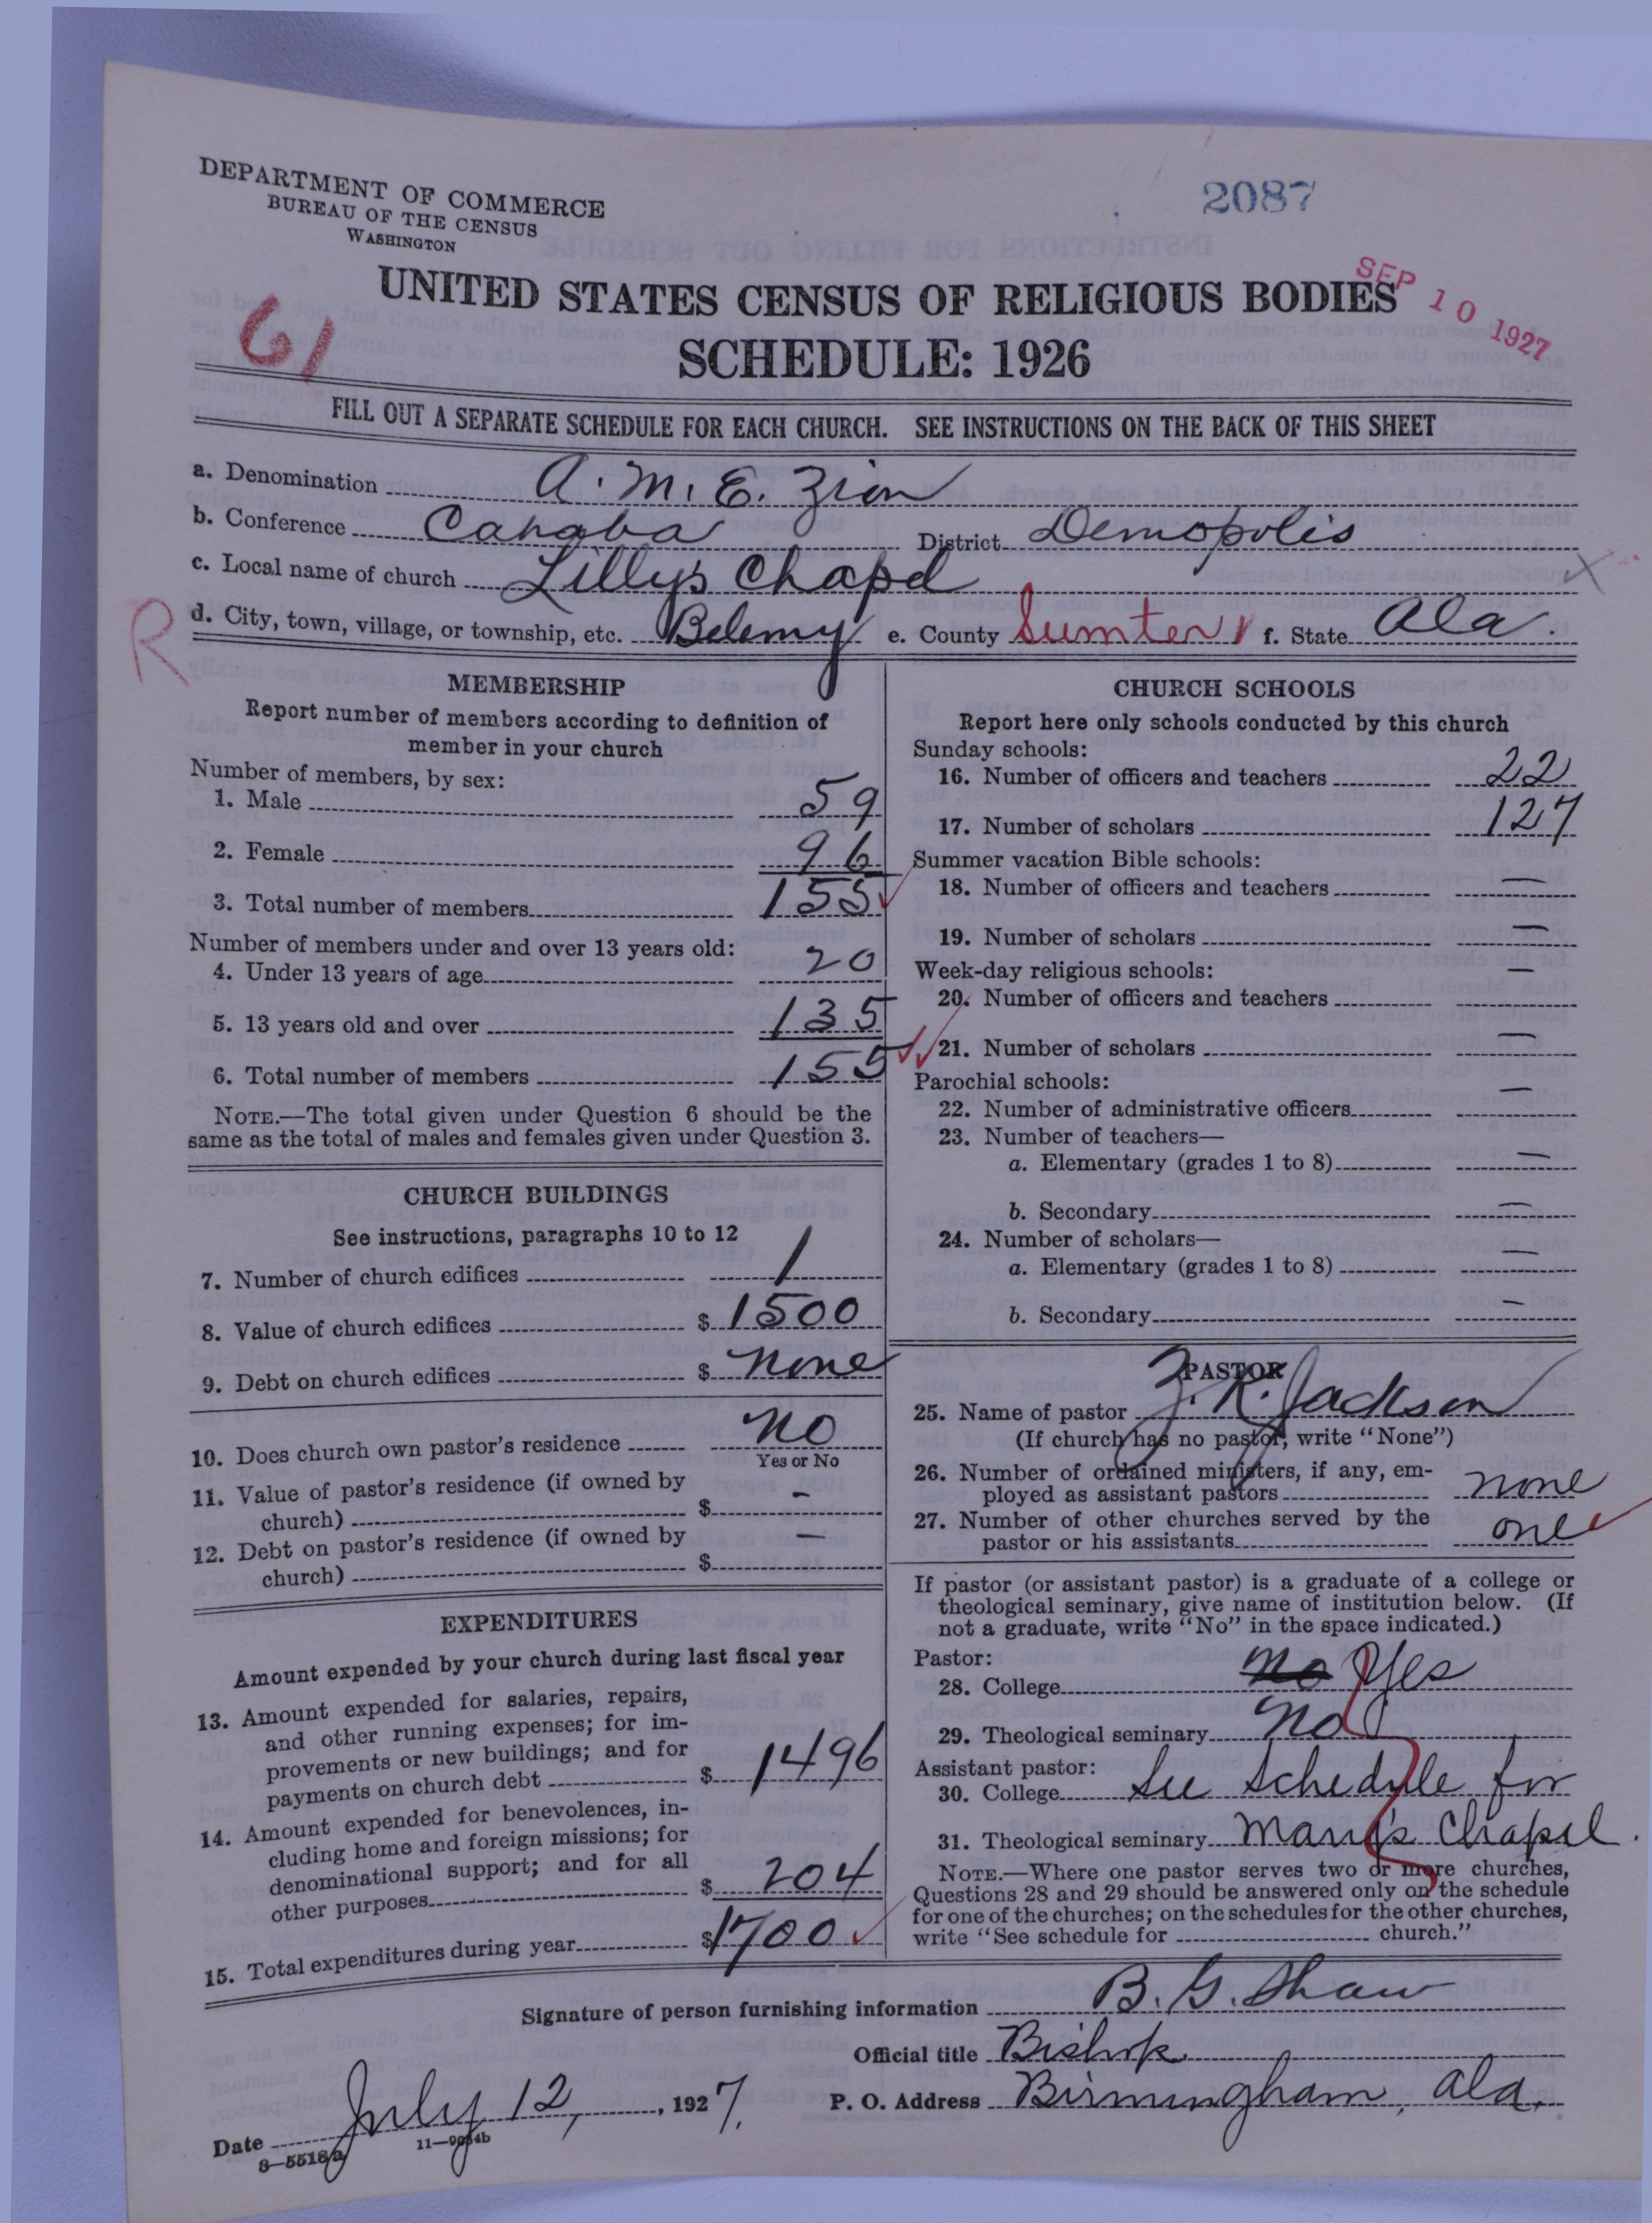 DEPARTMENT OF COMMERCE
BUREAU OF THE CENSUS
WASHINGTON
2087
SEP 10 1927
61
UNITED STATES CENSUS OF RELIGIOUS BODIES
SCHEDULE: 1926
FILL OUT A SEPARATE SCHEDULE FOR EACH CHURCH. SEE INSTRUCTIONS ON THE BACK OF THIS SHEET
a. Denomination A. M. E. Zion
b. Conference Cahaba District Demopolis
c. Local name of church Lilly's Chapel
R
d. City, town, village, or township, etc. Belemy e. County Sumter f. State Ala.
MEMBERSHIP
Report number of members according to definition of
member in your church
Number of members, by sex:
1. Male 59
2. Female 96
3. Total number of members 155
Number of members under and over 13 years old:
4. Under 13 years of age 20
5. 13 years old and over 135
6. Total number of members 155
NOTE.—The total given under Question 6 should be the
same as the total of males and females given under Question 3.
CHURCH BUILDINGS
See instructions, paragraphs 10 to 12
7. Number of church edifices 1
8. Value of church edifices $ 1500
9. Debt on church edifices $ None
10. Does church own pastor's residence No
Yes or No
11. Value of pastor's residence (if owned by
church) $ —
12. Debt on pastor's residence (if owned by
church) $ —
EXPENDITURES
Amount expended by your church during last fiscal year
13. Amount expended for salaries, repairs,
and other running expenses; for im-
provements or new buildings; and for
payments on church debt $ 1496
14. Amount expended for benevolences, in-
cluding home and foreign missions; for
denominational support; and for all
other purposes $ 204
15. Total expenditures during year $ 1700
CHURCH SCHOOLS
Report here only schools conducted by this church
Sunday schools:
16. Number of officers and teachers 22
17. Number of scholars 127
Summer vacation Bible schools:
18. Number of officers and teachers —
19. Number of scholars —
Week-day religious schools:
20. Number of officers and teachers —
21. Number of scholars —
Parochial schools:
22. Number of administrative officers —
23. Number of teachers—
a. Elementary (grades 1 to 8) —
b. Secondary —
24. Number of scholars—
a. Elementary (grades 1 to 8) —
b. Secondary —
PASTOR
25. Name of pastor Z. R. Jackson
(If church has no pastor, write "None")
26. Number of ordained ministers, if any, em-
ployed as assistant pastors none
27. Number of other churches served by the
pastor or his assistants one
If pastor (or assistant pastor) is a graduate of a college or
theological seminary, give name of institution below. (If
not a graduate, write "No" in the space indicated.)
Pastor:
28. College No Yes
29. Theological seminary No
Assistant pastor:
30. College See Schedule for
31. Theological seminary Chapel.
NOTE.—Where one pastor serves two or more churches,
Questions 28 and 29 should be answered only on the schedule
for one of the churches; on the schedules for the other churches,
write "See schedule for church."
Signature of person furnishing information B. G. Shaw
Official title Bishop
Date July 12, 1927. P. O. Address Birmingham, Ala.
8—5518a 11—9034b